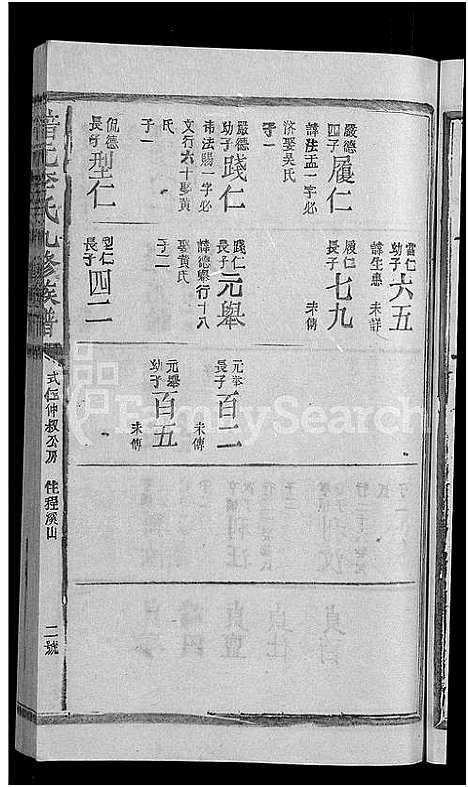 嚴德
四子
履仁
諱法孟一字必
濟娶吳氏
子一
嚴德
幼子
踐仁
諱法賜一字必
文行六十娶黃
氏
子一
侃德
長子
型仁
雷仁
幼子
六五
諱生惠 未詳
履仁
長子
七九
未傳
踐仁
長子
元舉
諱德舉行十八
娶黃氏
子二
型仁
長子
四二
元舉
長子
百二
未傳
元舉
幼子
百五
未傳
李氏九修族譜
式仁仲叔公房 住程溪山
二號
FamilySearch